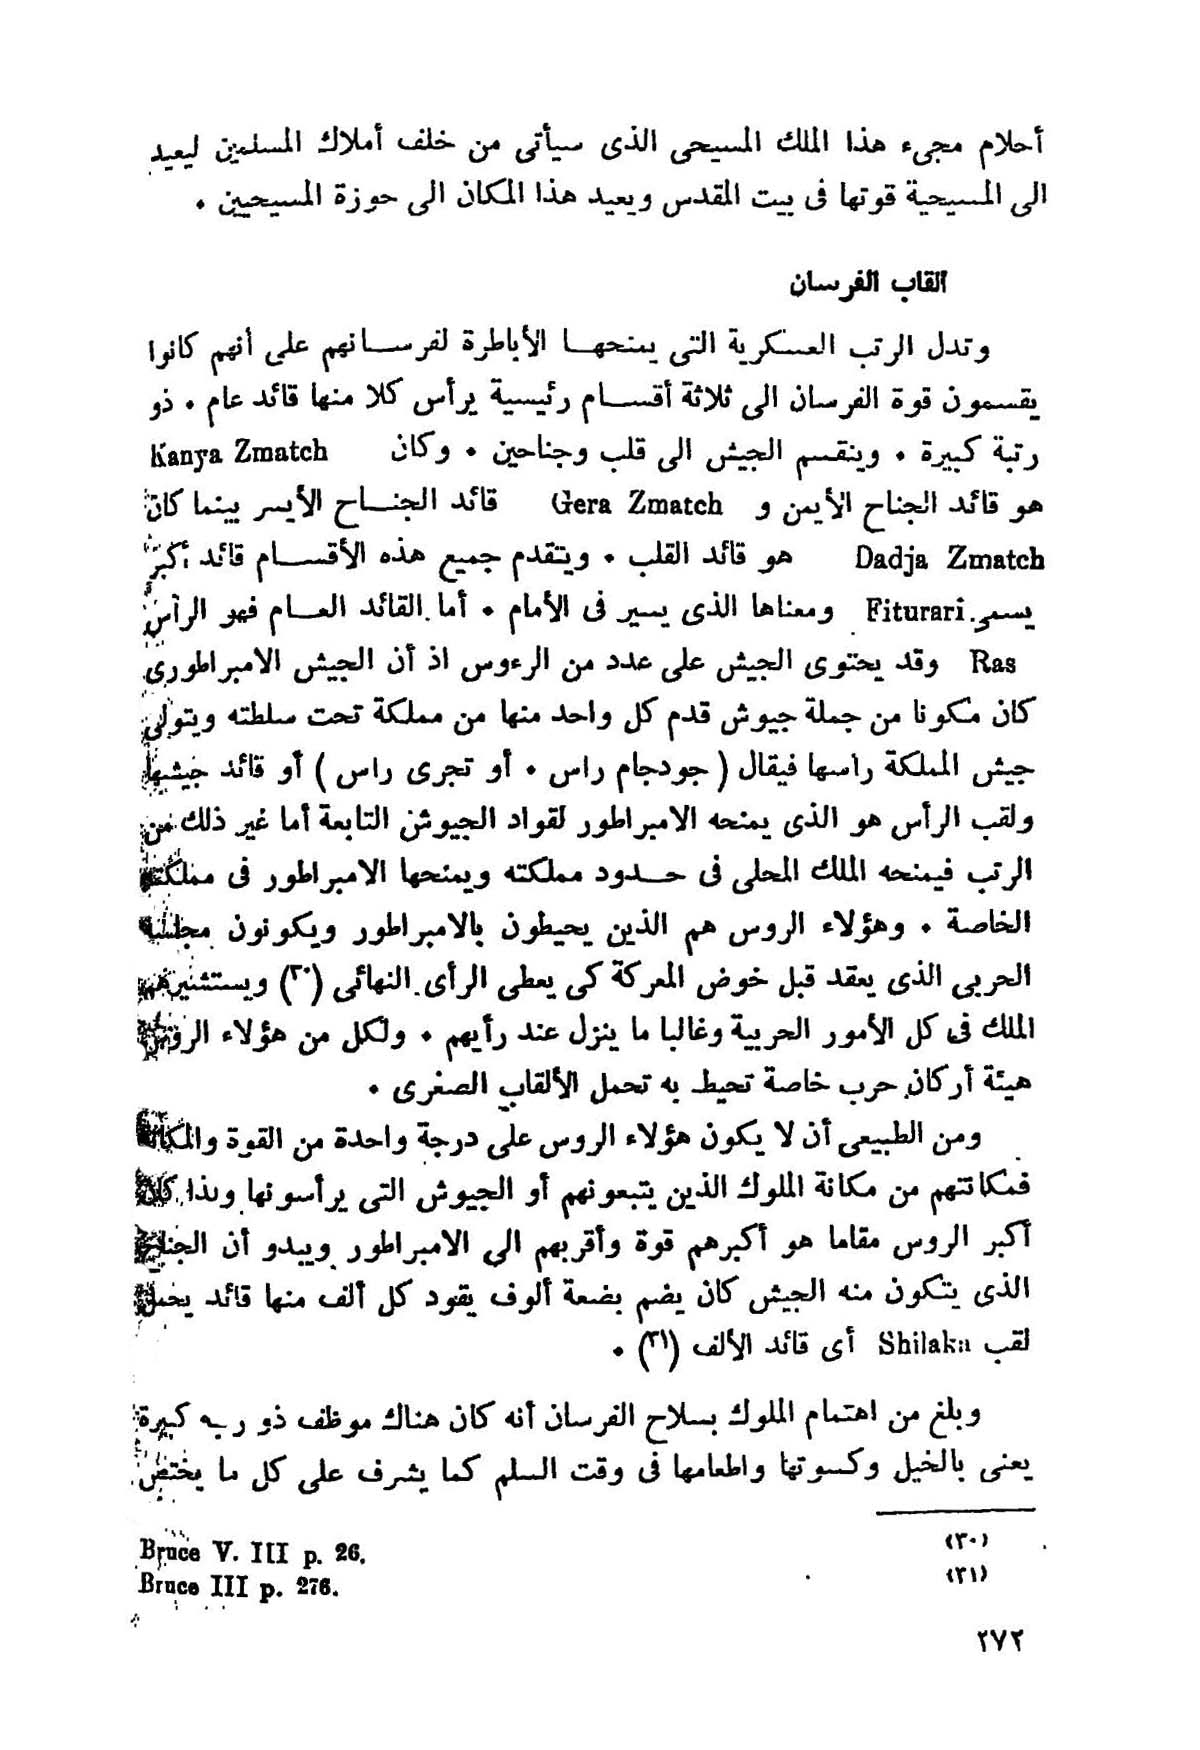 أحلام مجىء هذا الملك المسيحى الذى سيأتى من خلف أملاك المسلمين ليعيد
الى المسيحية قوتها فى بيت المقدس ويعيد هذا المكان الى حوزة المسيحيين .
القاب الفرسان
وتدل الرتب العسكرية التى يمنحها الأباطرة لفرسانهم على أنهم كانوا
يقسمون قوة الفرسان الى ثلاثة أقسام رئيسية يرأس كلا منها قائد عام . ذو
رتبة كبيرة . وينقسم الجيش الى قلب وجناحين . وكان Kanya Zmatch
هو قائد الجناح الأيمن و Gera Zmatch قائد الجناح الأيسر بينما كان
Dadja Zmatch هو قائد القلب . ويتقدم جميع هذه الأقسام قائد أكبر
يسمى Fiturari ومعناها الذى يسير فى الأمام . أما القائد العام فهو الرأس
Ras وقد يحتوى الجيش على عدد من الرءوس اذ أن الجيش الامبراطورى
كان مكونا من جملة جيوش قدم كل واحد منها من مملكة تحت سلطته ويتولى
جيش المملكة راسها فيقال ( جودجام راس . أو تجرى راس ) أو قائد جيشها
ولقب الرأس هو الذى يمنحه الامبراطور لقواد الجيوش التابعة أما غير ذلك من
الرتب فيمنحه الملك المحلى فى حدود مملكته ويمنحها الامبراطور فى مملكته
الخاصة . وهؤلاء الروس هم الذين يحيطون بالامبراطور ويكونون مجلسه
الحربى الذى يعقد قبل خوض المعركة كى يعطى الرأى النهائى (٣٠) ويستشيرهم
الملك فى كل الأمور الحربية وغالبا ما ينزل عند رأيهم . ولكل من هؤلاء الروس
هيئة أركان حرب خاصة تحيط به تحمل الألقاب الصغرى .
ومن الطبيعى أن لا يكون هؤلاء الروس على درجة واحدة من القوة والمكانة
فمكانتهم من مكانة الملوك الذين يتبعونهم أو الجيوش التى يرأسونها وبذا كان
أكبر الروس مقاما هو أكبرهم قوة وأقربهم الى الامبراطور ويبدو أن الجناح
الذى يتكون منه الجيش كان يضم بضعة ألوف يقود كل ألف منها قائد يحمل
لقب Shilaka أى قائد الألف (٣١) .
وبلغ من اهتمام الملوك بسلاح الفرسان أنه كان هناك موظف ذو كبيرة
يعنى بالخيل وكسوتها واطعامها فى وقت السلم كما يشرف على كل ما يختص
(٣٠) Bruce V. III p. 26.
(٣١) Bruce III p. 276.
٢٧٢